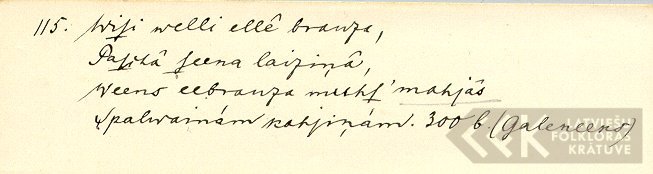 115. Wiſi welli ellê brauza,
Paſchâ ſeena laiziņâ,
Weens eebrauza muhſ' mahjâs
Spalwainám kahjiņám. 300 b. (Galeneens)
LATVIEŠU
FOLKLORAS
KRĀTUVE